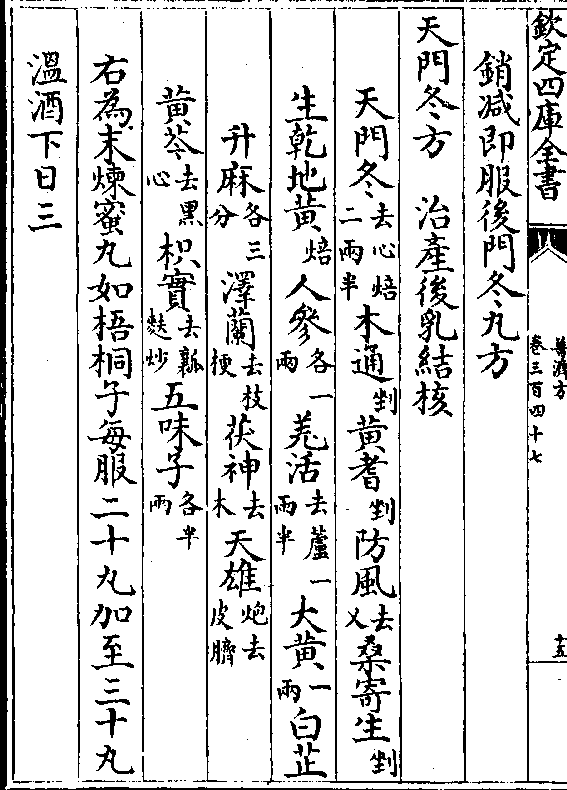 欽定四庫全書
普濟方
卷三百四十七
十五
銷减即服後門冬丸方
天門冬方　治產後乳結核
天門冬去心焙二兩半木通剉黃耆剉防風去乂桑寄生剉
生乾地黃焙人參各一兩羗活去蘆一兩半大黃一兩白芷
升麻各三分澤蘭去枝梗茯神去木天雄炮去皮臍
黃芩去黑心枳實去瓤麩炒五味子各半兩
右為末煉蜜丸如梧桐子每服二十丸加至三十丸
溫酒下日三